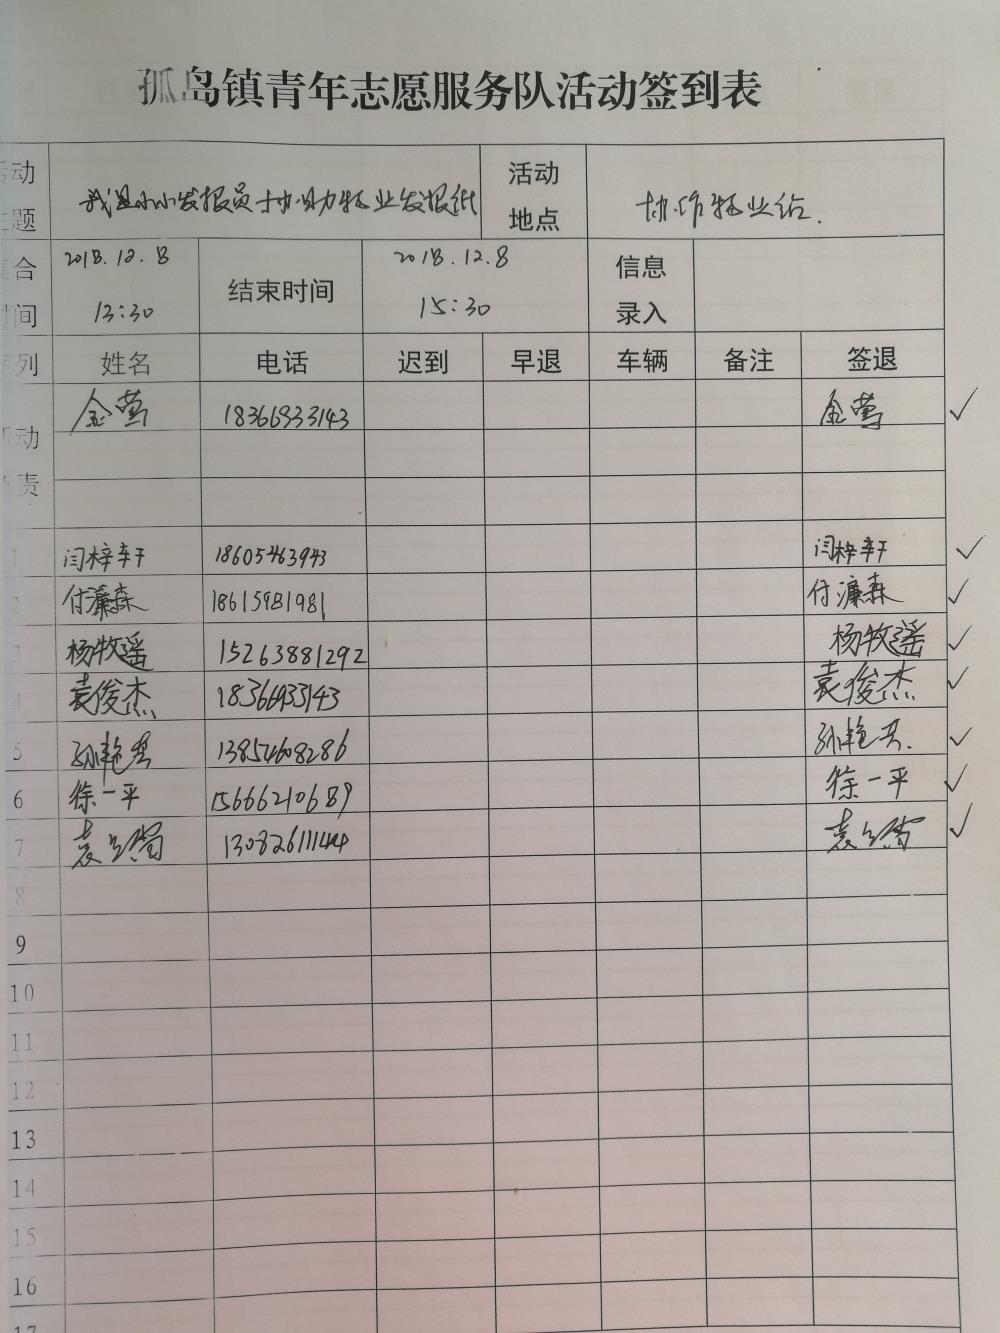 孤岛镇青年志愿服务队活动签到表
活动主题 我是小小发报员 协助物业发报纸 活动地点 协作物业站.
集合时间 2018.12.8 13:30 结束时间 2018.12.8 15:30 信息录入
序列 姓名 电话 迟到 早退 车辆 备注 签退
活动负责 金莺 18366933143 金莺 ✓
1 闫梓轩 18605463943 闫梓轩 ✓
2 付濂森 18615981981 付濂森 ✓
3 杨牧遥 15263881292 杨牧遥 ✓
4 袁俊杰 18366933143 袁俊杰 ✓
5 孙艳 13854608286 孙艳 ✓
6 徐一平 15666210689 徐一平 ✓
7 袁 13082611144 袁 ✓
8
9
10
11
12
13
14
15
16
17